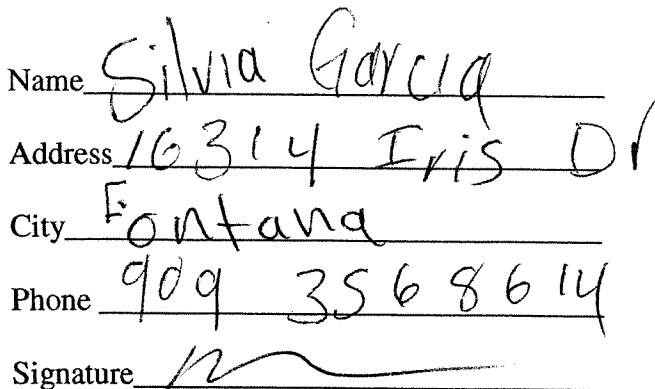 Name Silvia Garcia
Address 16314 Iris Dr
City Fontana
Phone 909 356 8614
Signature